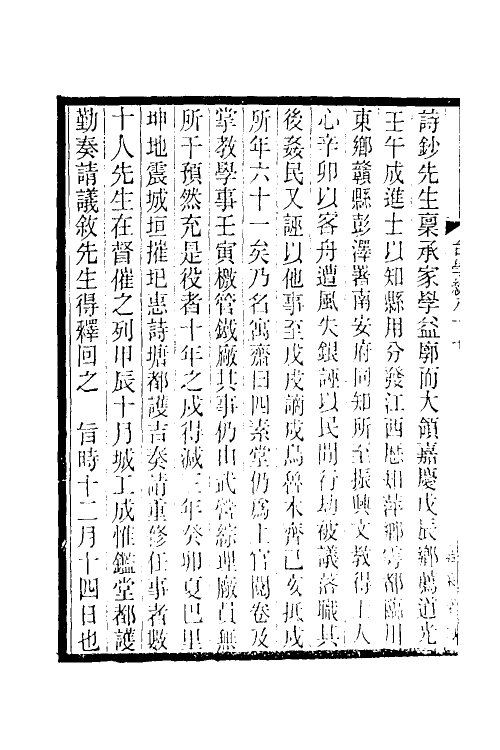 詩鈔先生稟承家學益廓而大領嘉慶戊辰鄉薦道光
壬午成進士以知縣用分發江西歷知萍鄉雩都臨川
東鄉贛縣彭澤署南安府同知所至振興文教得士人
心辛卯以客舟遭風失銀誣以民間行劫被議落職其
後姦民又誣以他事至戊戌謫戍烏魯木齊己亥抵戍
所年六十一矣乃名寓齋曰四素堂仍為上官閱卷及
掌教學事壬寅檄管鐵廠其事仍由武營綜理廠員無
所干預然充是役者十年之戍得減三年癸卯夏巴里
坤地震城垣摧圮惠詩塘都護吉奏請重修任事者數
十人先生在督催之列甲辰十月城工成惟鑑堂都護
勤奏請議敘先生得釋回之 旨時十二月十四日也
台學統八十七